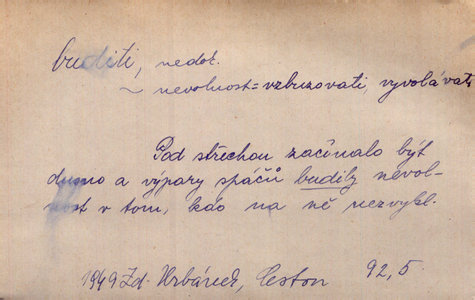 buditi, nedok.
~ nevolnost = vzbuzovati, vyvolávati
Pod střechou začínalo být
dusno a výpary spáčů budily nevol-
nost v tom, kdo na ně nezvykl.
1949 Zd. Urbánek, Cestou 92,5